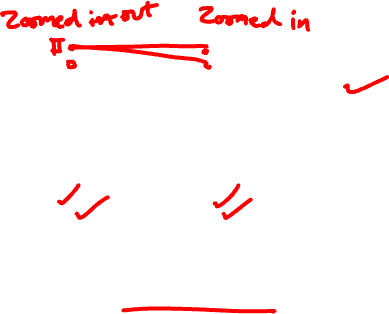 Zoomed in-out Zoomed in
II